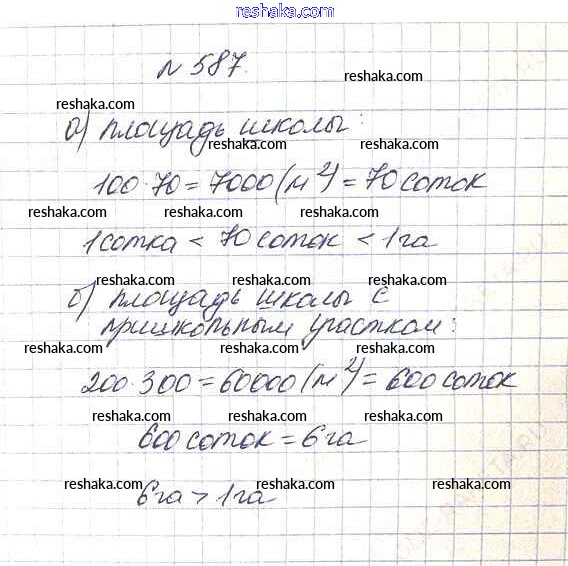 reshaka.com
№ 587.
reshaka.com
reshaka.com
а) площадь школы:
reshaka.com reshaka.com reshaka.com
100·70 = 7000 (м²) = 70 соток
reshaka.com reshaka.com reshaka.com
1 сотка < 70 соток < 1 га
reshaka.com reshaka.com reshaka.com
б) площадь школы с
пришкольным участком:
reshaka.com reshaka.com reshaka.com
200·300 = 60000 (м²) = 600 соток
reshaka.com reshaka.com reshaka.com
600 соток = 6 га
reshaka.com reshaka.com reshaka.com
6 га > 1 га